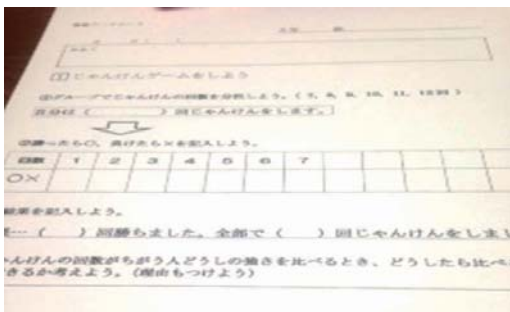 1 じゃんけんゲームをしよう
①グループでじゃんけんの回数を分担しよう。( 7, 8, 9, 10, 11, 12回 )
自分は ( ) 回じゃんけんをします。
②勝ったら○、負けたら×を記入しよう。
回数 1 2 3 4 5 6 7
○×
結果を記入しよう。
… ( ) 回勝ちました。全部で ( ) 回じゃんけんをしまし
ゃんけんの回数がちがう人どうしの強さを比べるとき、どうしたら比べ
きるか考えよう。(理由もつけよう)